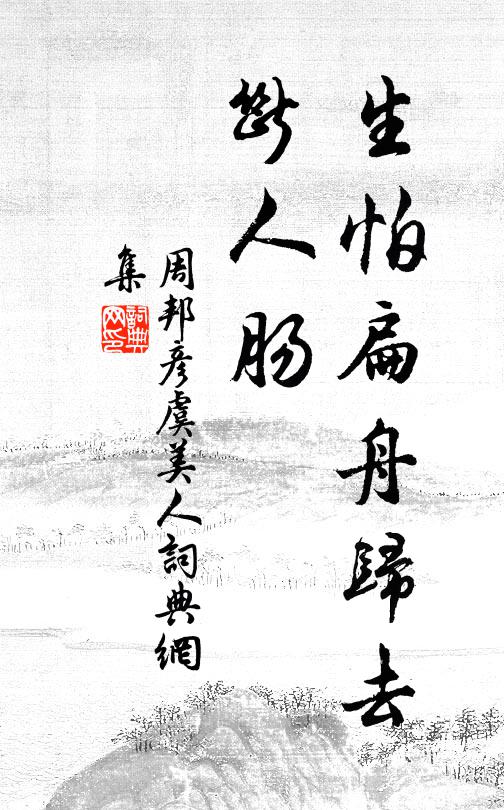 生怕扁舟歸去
斷人肠
周邦彦虞美人詞典網
集
詞典
网印